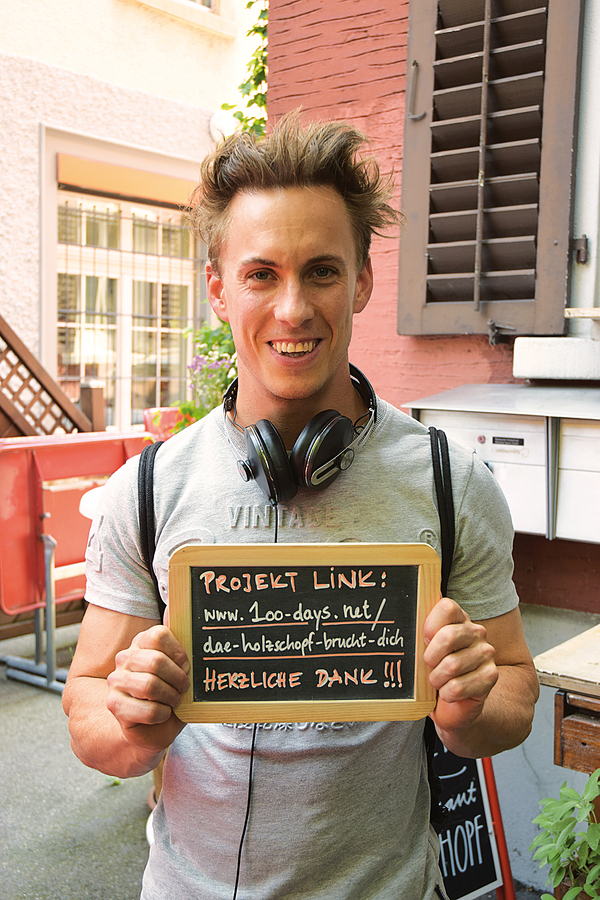 VINTAGE
PROJEKT LINK:
www.100-days.net/
dae-holzschopf-brucht-dich
HERZLICHE DANK!!!
HOPF